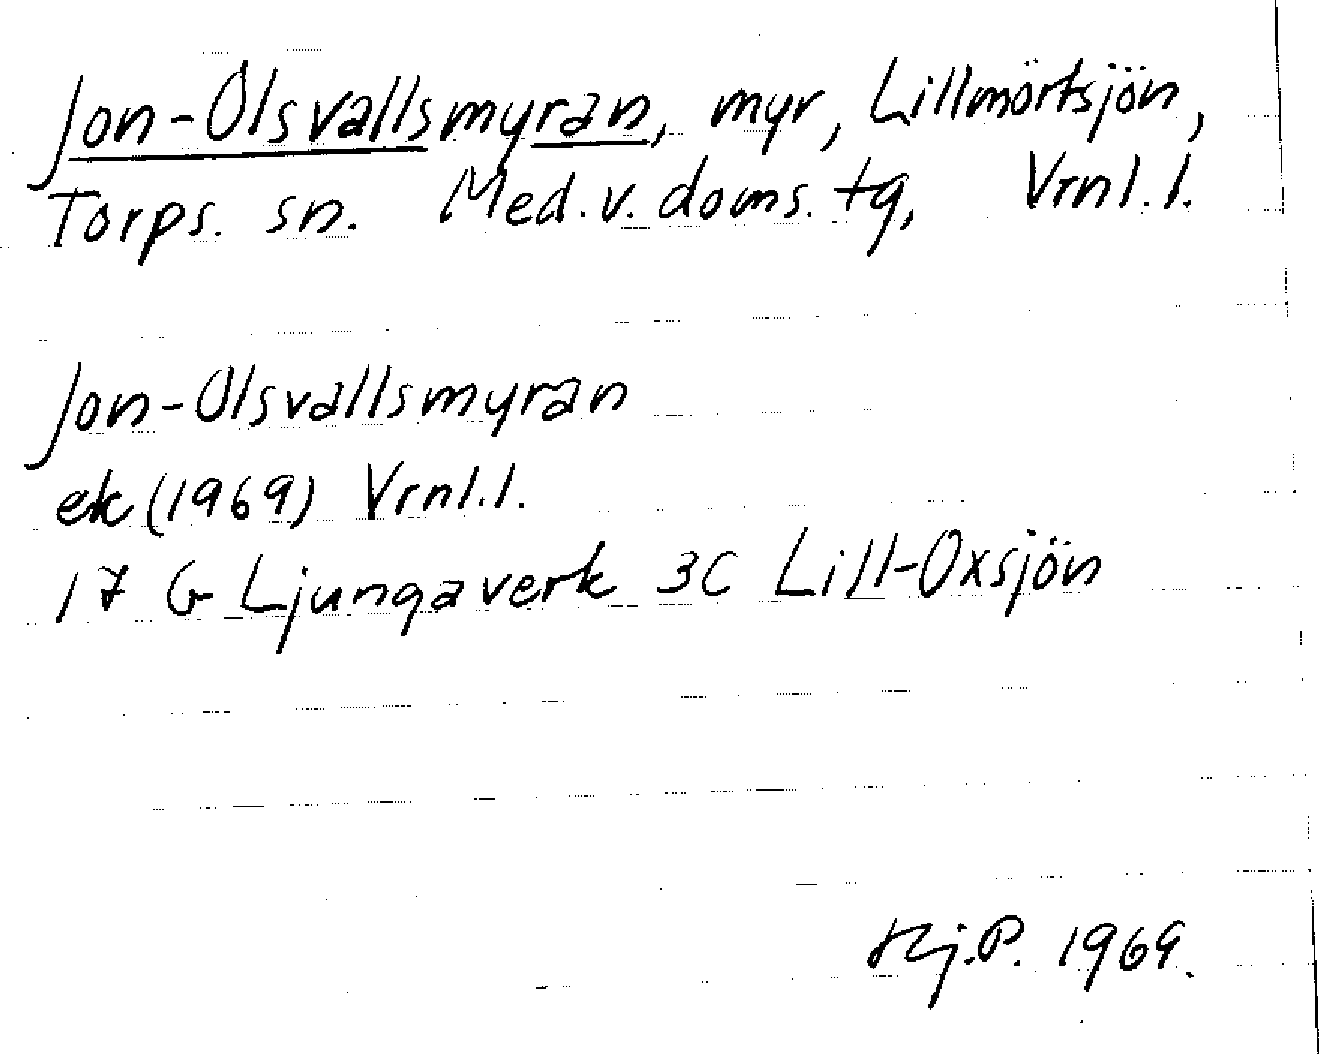 Jon-Olsvallsmyran, myr, Lillmörtsjön,
Torps. sn. Med.v.doms.tg, Vrnl.l.
Jon-Olsvallsmyran
ek (1969) Vrnl.l.
17 G Ljungaverk 3C Lill-Oxsjön
Hj.P. 1969.